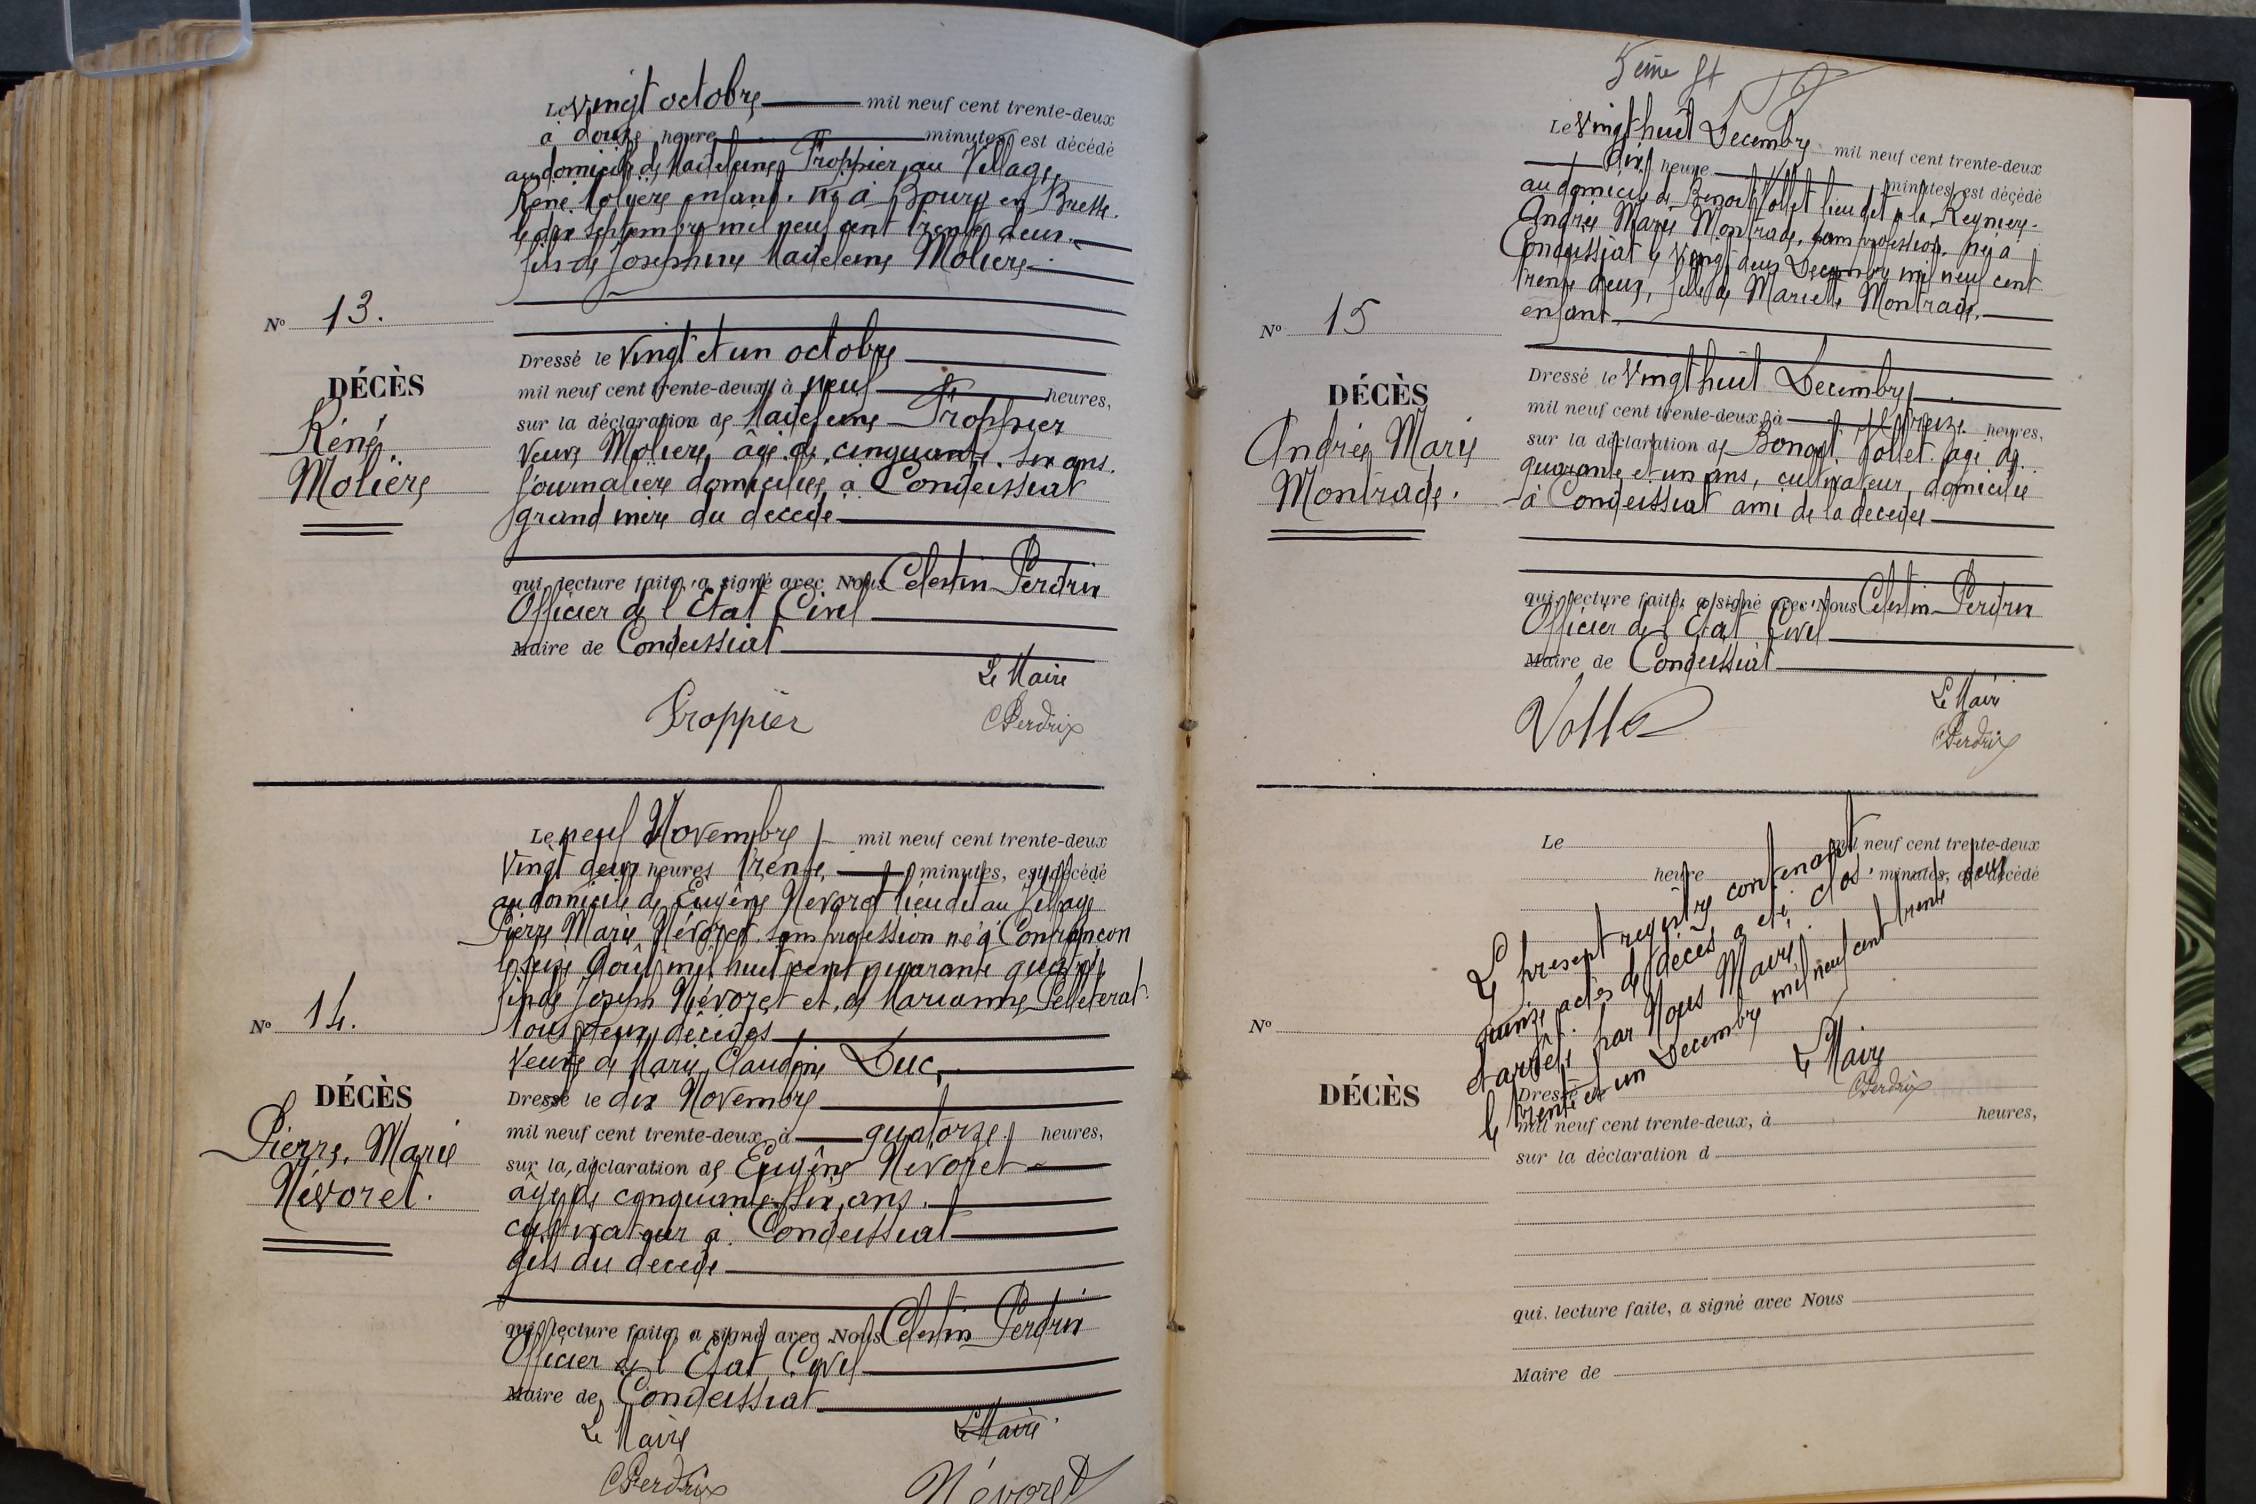 Le vingt octobre mil neuf cent trente-deux
à douze heure minutes est décédé
au domicile de Madeleine Troppier au Village
René Molière enfant. né à Bourg en Bresse.
le dix septembre mil neuf cent trente deux.
fils de Josephine Madeleine Molière.
No 13.
DÉCÈS
Réné
Molière
Dressé le vingt et un octobre
mil neuf cent trente-deux, à neuf heures,
sur la déclaration de Madeleine Troppier
veuve Molière, âgé de cinquante six ans.
Journalière domiciliée à Condeissiat
grand mère du decede
qui, lecture faite, a signé avec Nous Celestin Perdrix
Officier de l'Etat Civil
Maire de Condeissiat
Le Maire
Troppier
C Perdrix
Le neuf Novembre mil neuf cent trente-deux
Vingt deux heures trente minutes, est décédé
au domicile de Eugène Névoret lieu dit au Village
Pierre Marie Névoret sans profession né à Confrançon
le seize Août mil huit cent quarante quatre
fils de Joseph Névoret et de Marianne Pelleterat
tous deux décédés
Veuf de Marie Claudine Duc,
No 14.
DÉCÈS
Pierre, Marie
Névoret.
Dressé le dix Novembre
mil neuf cent trente-deux, à quatorze heures,
sur la déclaration de Eugène Névoret
âgé de cinquante six ans.
cultivateur à Condeissiat
fils du decede
qui, lecture faite, a signé avec Nous Celestin Perdrix
Officier de l'Etat Civil
Maire de Condeissiat
Le Maire
Le Maire
C Perdrix
Névoret
5eme
Le vingt huit Decembre mil neuf cent trente-deux
dix heure minutes est décédé
au domicile de Benoit Vollet lieu dit à la Reyniere
Andrée Marie Montrade, sans profession, née à
Condeissiat le vingt deux Decembre mil neuf cent
trente deux, fille de Marcelle Montrade.
enfant
No 15
DÉCÈS
Andrée Marie
Montrade.
Dressé le vingt huit Decembre
mil neuf cent trente-deux, à treize heures,
sur la déclaration de Benoit Vollet âgé de
quarante et un ans, cultivateur, domicilié
à Condeissiat ami de la decedee
qui, lecture faite, a signé avec Nous Celestin Perdrix
Officier de l'Etat Civil
Maire de Condeissiat
Le Maire
Vollet
C Perdrix
Le mil neuf cent trente-deux
heure minutes, est décédé
Le present registre contenant
quinze actes de décès a eté clos
et arrêté par Nous Maire
le trente et un Decembre mil neuf cent trente deux
Le Maire
C Perdrix
No
DÉCÈS
Dressé
mil neuf cent trente-deux, à heures,
sur la déclaration d
qui, lecture faite, a signé avec Nous
Maire de